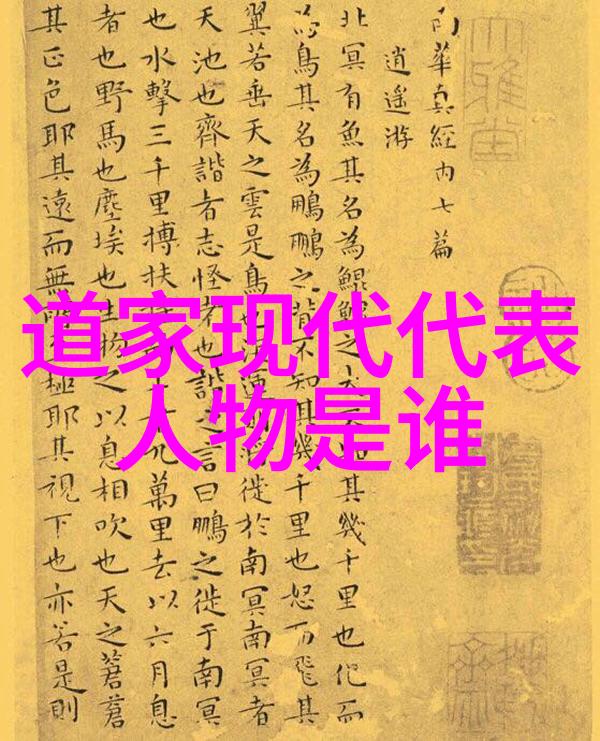 道家现代代表
人物是谁
南華真經內七篇
逍遙游
北冥有魚其名為鯤鯤之其幾千里也化而
為鳥其名為鵬鵬之背不知其幾千里也怒而飛其
翼若垂天之雲是鳥也徙於南冥南冥者
天池也齊諧者志怪者也諧之言曰鵬之徙于南冥
也水擊三千里摶扶九萬里去以六月息
者也野馬也塵埃也生物之以息相吹也天之蒼蒼
其正色耶其遠而無極耶其視下也亦若是則